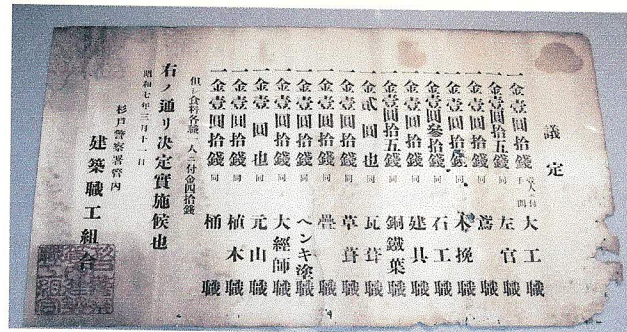 議定
一金壹圓拾錢 手間 大工職
一金壹圓拾五錢 同 左官職
一金壹圓拾錢 同 鳶職
一金壹圓拾錢 同 木挽職
一金壹圓參拾錢 同 石工職
一金壹圓拾錢 同 建具職
一金壹圓拾五錢 同 銅鐵葉職
一金貳圓也 同 瓦葺職
一金壹圓拾錢 同 草葺職
一金壹圓拾錢 同 疊職
一金壹圓拾錢 同 ペンキ塗職
一金壹圓拾錢 同 大經師職
一金壹圓也 同 元山職
一金壹圓拾錢 同 植木職
一金壹圓拾錢 同 桶職
但シ食料各職一人ニ付金四拾錢
右ノ通リ決定實施候也
昭和七年三月十一日
杉戸警察署管內
建築職工組合